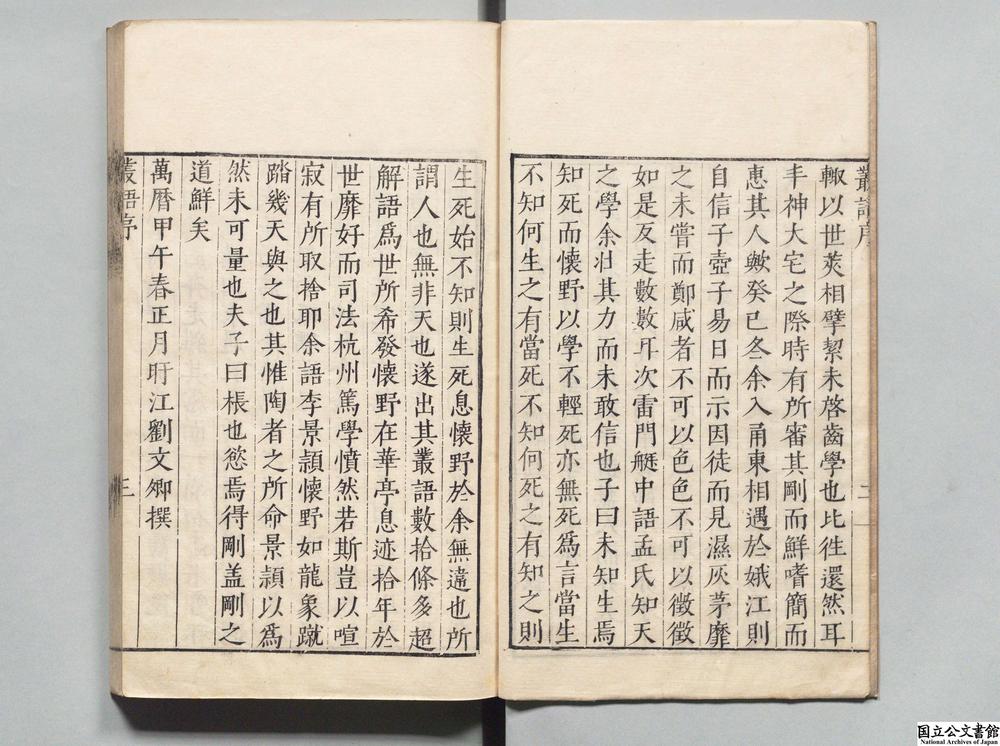 叢語序
二
輙以世莢相擘絜未啓齒學也比徃還然耳
丰神大宅之際時有所審其剛而鮮嗜簡而
惠其人歟癸巳冬余入甬東相遇於娥江則
自信子壺子易日而示因徒而見濕灰茅靡
之未嘗而鄭咸者不可以色色不可以徴徴
如是反走數數耳次雷門艇中語孟氏知天
之學余壮其力而未敢信也子曰未知生焉
知死而懷野以學不輕死亦無死爲言當生
不知何生之有當死不知何死之有知之則
生死始不知則生死息懷野於余無違也所
謂人也無非天也遂出其叢語數拾條多超
解語爲世所希發懷野在華亭息迹拾年於
世靡好而司法杭州篤學憤然若斯豈以喧
寂有所取捨耶余語李景頴懷野如龍象蹴
踏幾天與之也其惟陶者之所命景頴以爲
然未可量也夫子曰棖也慾焉得剛盖剛之
道鮮矣
萬暦甲午春正月旴江劉文卿撰
叢語序
三
国立公文書館
National Archives of Japan